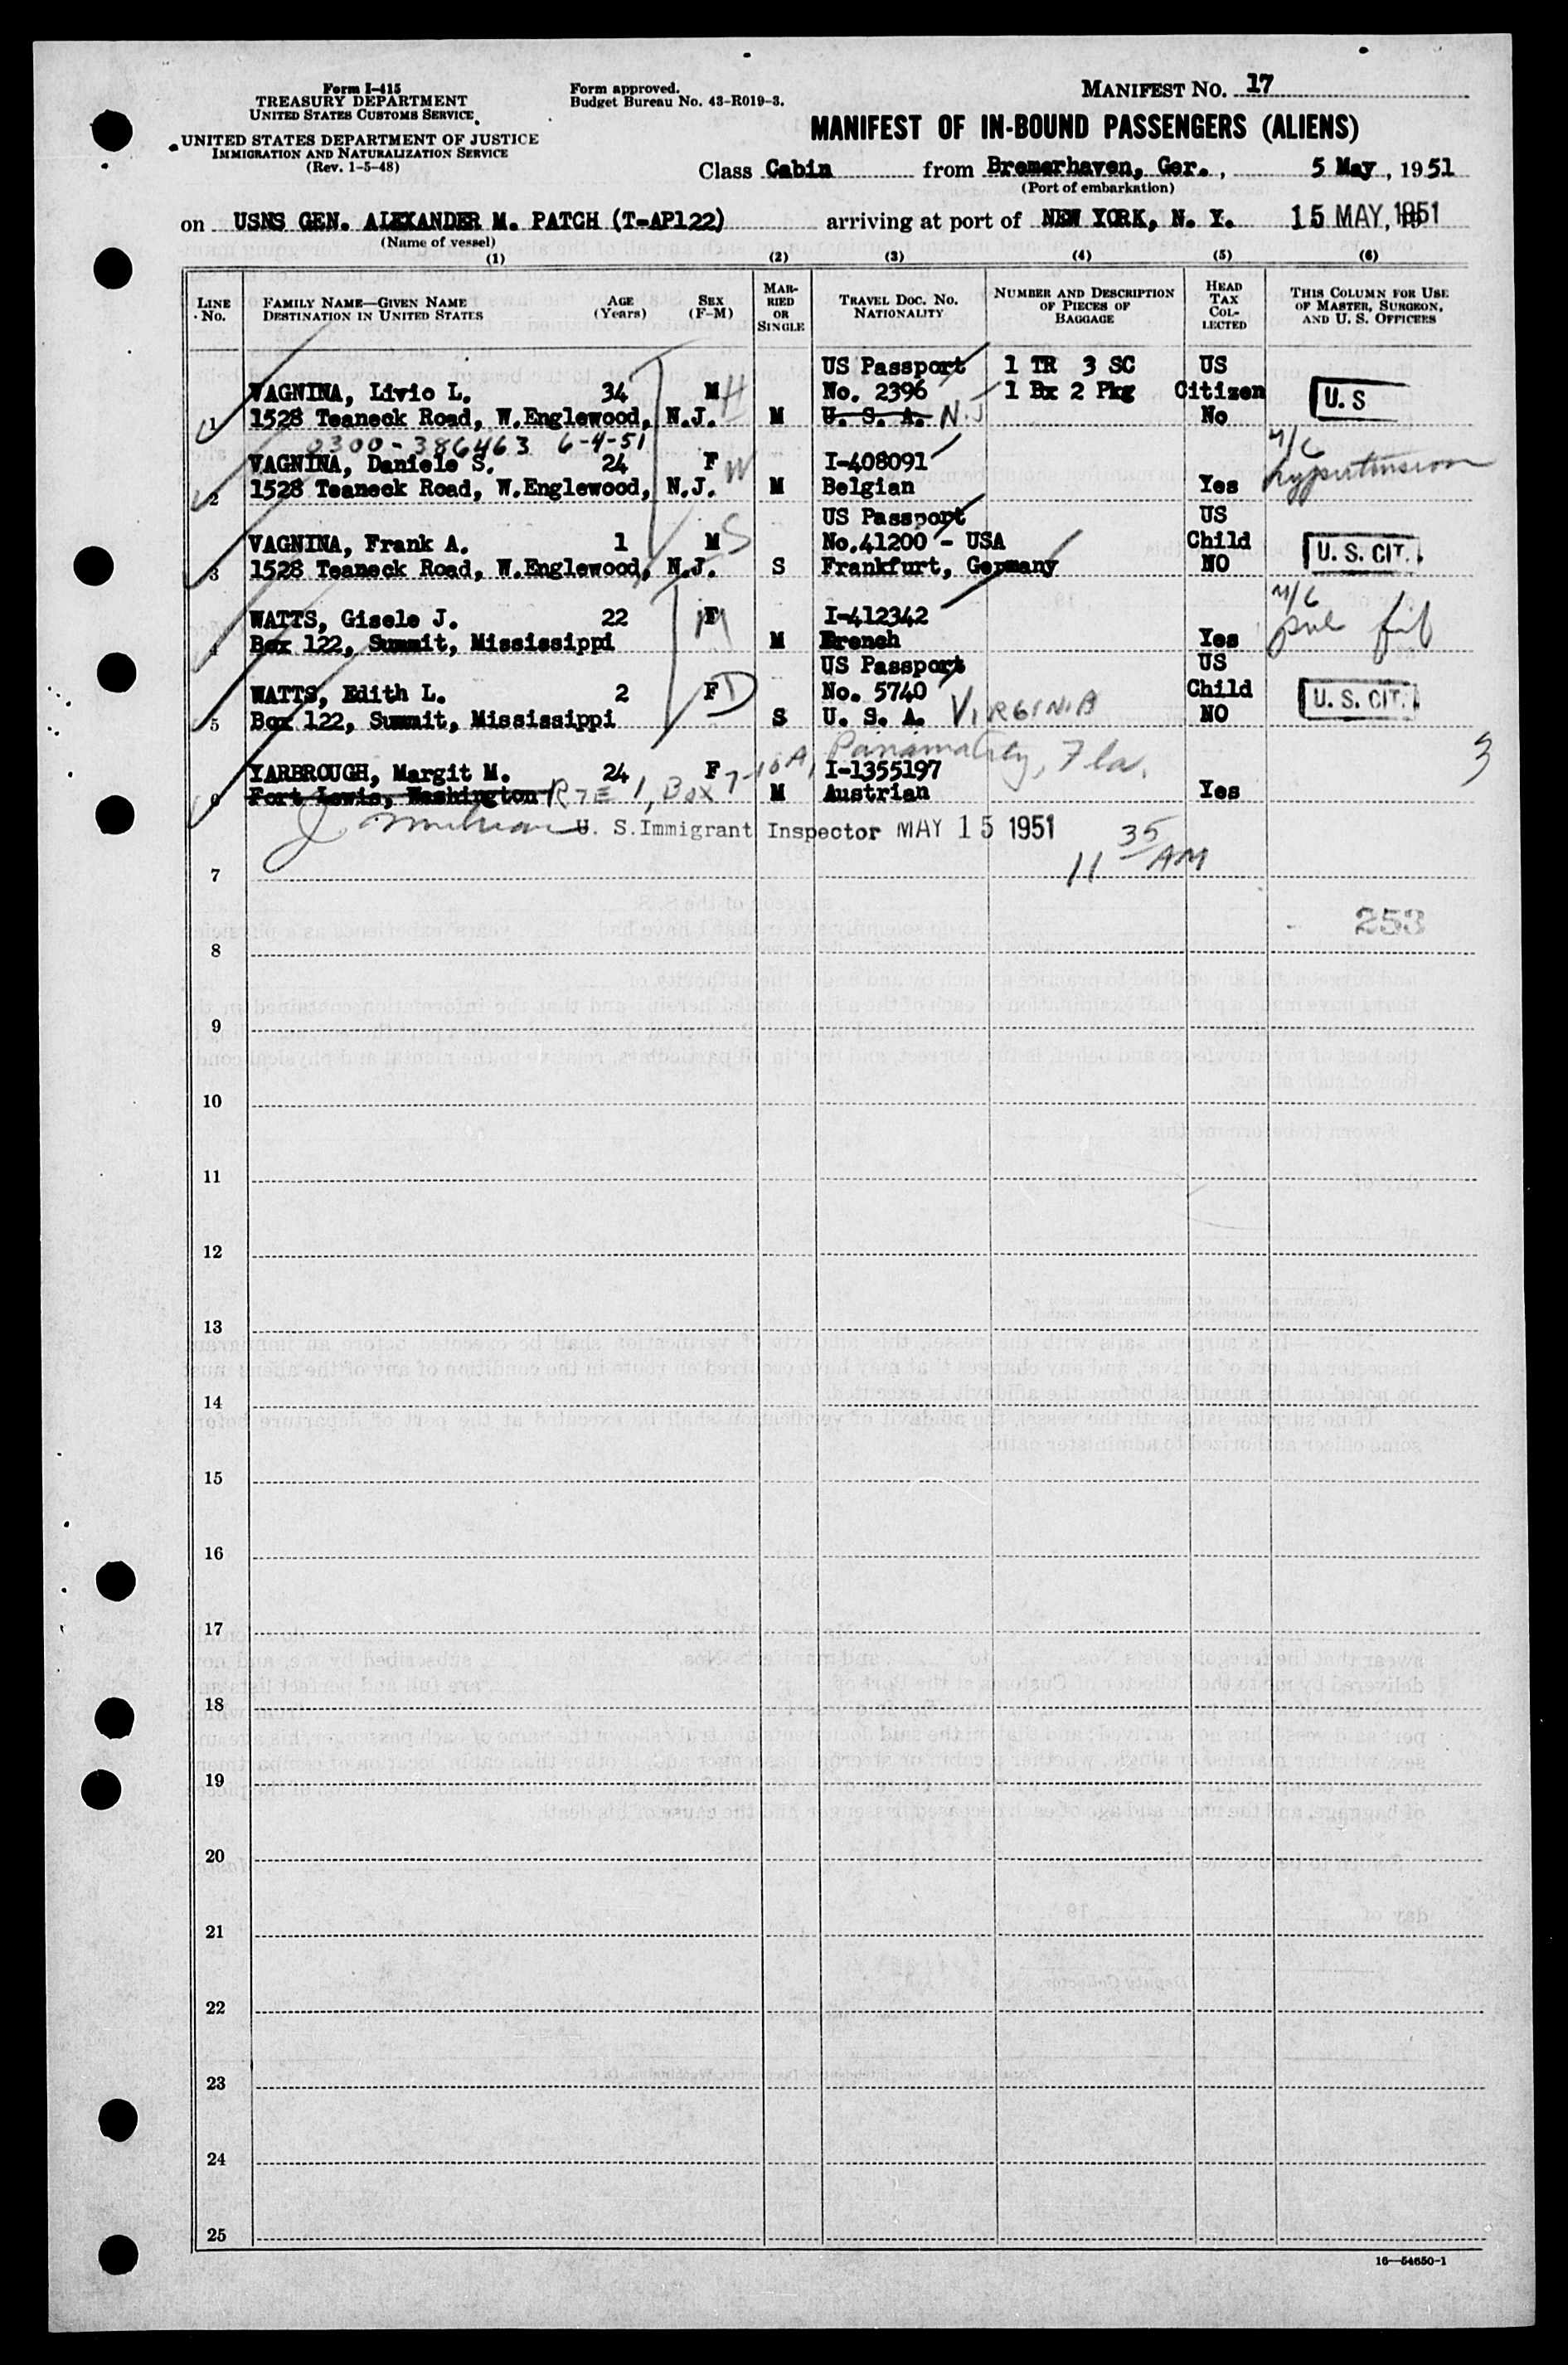 Form I-415
TREASURY DEPARTMENT
UNITED STATES CUSTOMS SERVICE
UNITED STATES DEPARTMENT OF JUSTICE
IMMIGRATION AND NATURALIZATION SERVICE
(Rev. 1-5-48)
Form approved.
Budget Bureau No. 43-R019-3.
MANIFEST No. 17
MANIFEST OF IN-BOUND PASSENGERS (ALIENS)
Class Cabin from Bremerhaven, Ger., 5 May, 1951
(Port of embarkation)
on USNS GEN. ALEXANDER M. PATCH (T-AP122) arriving at port of NEW YORK, N. Y. 15 MAY, 1951
(Name of vessel)
(1) (2) (3) (4) (5) (6)
LINE No.
FAMILY NAME—GIVEN NAME
DESTINATION IN UNITED STATES
AGE (Years)
SEX (F-M)
MARRIED OR SINGLE
TRAVEL DOC. NO.
NATIONALITY
NUMBER AND DESCRIPTION OF PIECES OF BAGGAGE
HEAD TAX COLLECTED
THIS COLUMN FOR USE OF MASTER, SURGEON, AND U. S. OFFICERS
US Passport 1 TR 3 SC US
VAGNINA, Livio L. 34 M H No. 2396 1 Bx 2 Pkg Citizen U. S
1 1528 Teaneck Road, W.Englewood, N.J. M U. S. A. N.J No
0300-386463 6-4-51
VAGNINA, Daniele S. 24 F W I-408091 hypertension
2 1528 Teaneck Road, W.Englewood, N.J. M Belgian Yes
US Passport US
VAGNINA, Frank A. 1 M S No.41200 - USA Child U. S. CIT.
3 1528 Teaneck Road, W.Englewood, N.J. S Frankfurt, Germany NO
WATTS, Gisele J. 22 F M I-412342
4 Box 122, Summit, Mississippi M French Yes
US Passport US
WATTS, Edith L. 2 F D No. 5740 Child U. S. CIT.
5 Box 122, Summit, Mississippi S U. S. A. VIRGINIA NO
Panama City, Fla.
YARBROUGH, Margit M. 24 F I-1355197 3
6 Fort Lewis, Washington RTE 1, Box 7-10A, M Austrian Yes
U. S.Immigrant Inspector MAY 15 1951
11 35 AM
7
253
8
9
10
11
12
13
14
15
16
17
18
19
20
21
22
23
24
25
16—54650-1